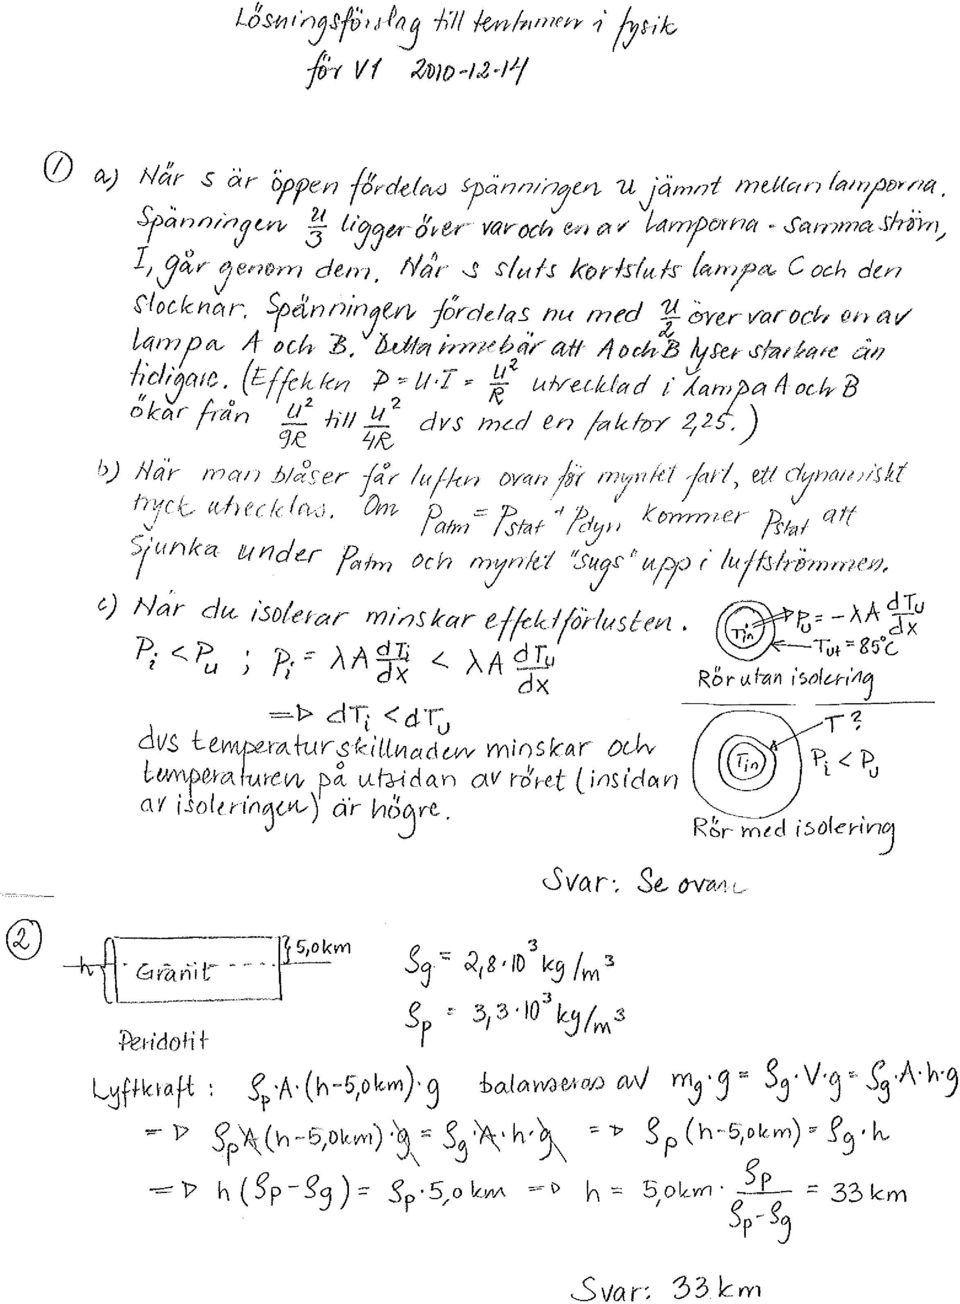 Lösningsförslag till tentamen i fysik
för V1 2010-12-14
① a) När s är öppen fördelas spänningen U jämnt mellan lamporna.
Spänningen U/3 ligger över var och en av lamporna - samma ström,
I, går genom dem. När s sluts kortsluts lampa C och den
slocknar. Spänningen fördelas nu med U/2 över var och en av
lampa A och B. Detta innebär att A och B lyser starkare än
tidigare. (Effekten P = U·I = U²/R utvecklad i lampa A och B
ökar från U²/9R till U²/4R dvs med en faktor 2,25.)
b) När man blåser får luften ovanför myntet fart, ett dynamiskt
tryck utvecklas. Om Patm = Pstat + Pdyn kommer Pstat att
sjunka under Patm och myntet "sugs" upp i luftströmmen.
c) När du isolerar minskar effektförlusten.
Pi < Pu ; Pi = λA dTi/dx < λA dTu/dx
=> dTi < dTu
dvs temperaturskillnaden minskar och
temperaturen på utsidan av röret (insidan
av isoleringen) är högre.
Tin
Pu = -λA dTu/dx
Tut = 85°C
Rör utan isolering
T?
Tin
Pi < Pu
Rör med isolering
Svar: Se ovan
② h Granit 5,0km
Peridotit
ρg = 2,8·10³ kg/m³
ρp = 3,3·10³ kg/m³
Lyftkraft: ρp·A·(h-5,0km)·g balanseras av mg·g = ρg·V·g = ρg·A·h·g
=> ρpA(h-5,0km)·g = ρg·A·h·g => ρp(h-5,0km) = ρg·h
=> h(ρp-ρg) = ρp·5,0km => h = 5,0km · ρp/(ρp-ρg) = 33km
Svar: 33km